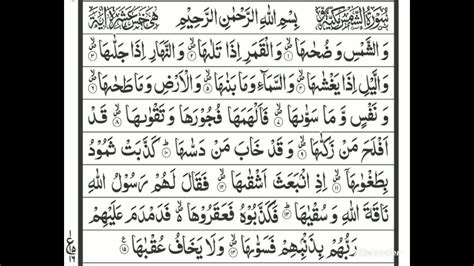 سُوۡرَةُ الشَّمۡسِ مَكِّيَّةٌ بِسۡمِ اللّٰهِ الرَّحۡمٰنِ الرَّحِيۡمِ هِيَ خَمۡسَ عَشۡرَةَ اٰيَةً
وَالشَّمۡسِ وَضُحٰىهَا ۝۱ وَالۡقَمَرِ اِذَا تَلٰىهَا ۝۲ وَالنَّهَارِ اِذَا جَلّٰىهَا ۝۳
وَالَّيۡلِ اِذَا يَغۡشٰىهَا ۝۴ وَالسَّمَآءِ وَمَا بَنٰىهَا ۝۵ وَالۡاَرۡضِ وَمَا طَحٰىهَا ۝۶
وَنَفۡسٍ وَّمَا سَوّٰىهَا ۝۷ فَاَلۡهَمَهَا فُجُوۡرَهَا وَتَقۡوٰىهَا ۝۸ قَدۡ
اَفۡلَحَ مَنۡ زَكّٰىهَا ۝۹ وَقَدۡ خَابَ مَنۡ دَسّٰىهَا ۝۱۰ كَذَّبَتۡ ثَمُوۡدُ
بِطَغۡوٰىهَآ ۝۱۱ اِذِ انۡۢبَعَثَ اَشۡقٰىهَا ۝۱۲ فَقَالَ لَهُمۡ رَسُوۡلُ اللّٰهِ
نَاقَةَ اللّٰهِ وَسُقۡيٰهَا ۝۱۳ فَكَذَّبُوۡهُ فَعَقَرُوۡهَا فَدَمۡدَمَ عَلَيۡهِمۡ
رَبُّهُمۡ بِذَنۡۢبِهِمۡ فَسَوّٰىهَا ۝۱۴ وَلَا يَخَافُ عُقۡبٰهَا ۝۱۵